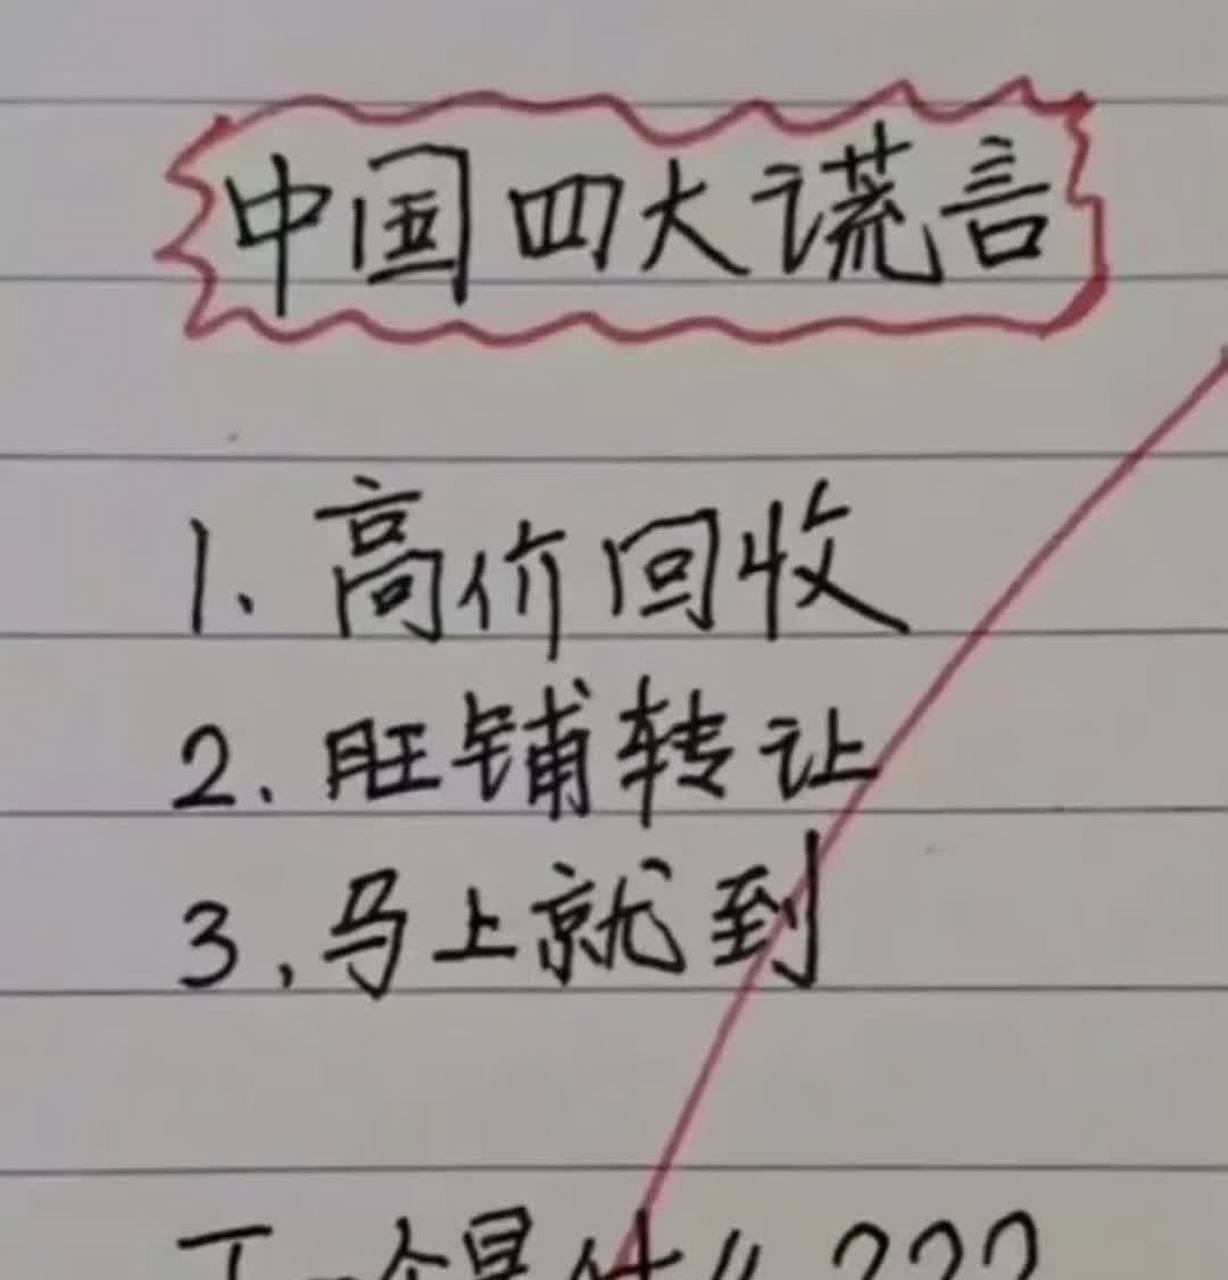 中国四大谎言
1、高价回收
2、旺铺转让
3、马上就到
下一个是什么???